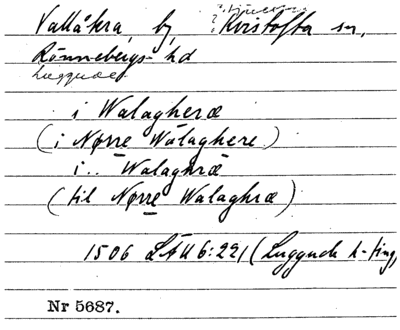 Vallåkra, by, Kvistofta sn,
Rönnebergs hd
Luggudes
i Walagheræ
(i Nørre Walaghere)
i.. Walaghræ
(til Nørre Walaghræ)
1506 LÅU 6:221 (Luggude h-ting,
Nr 5687.